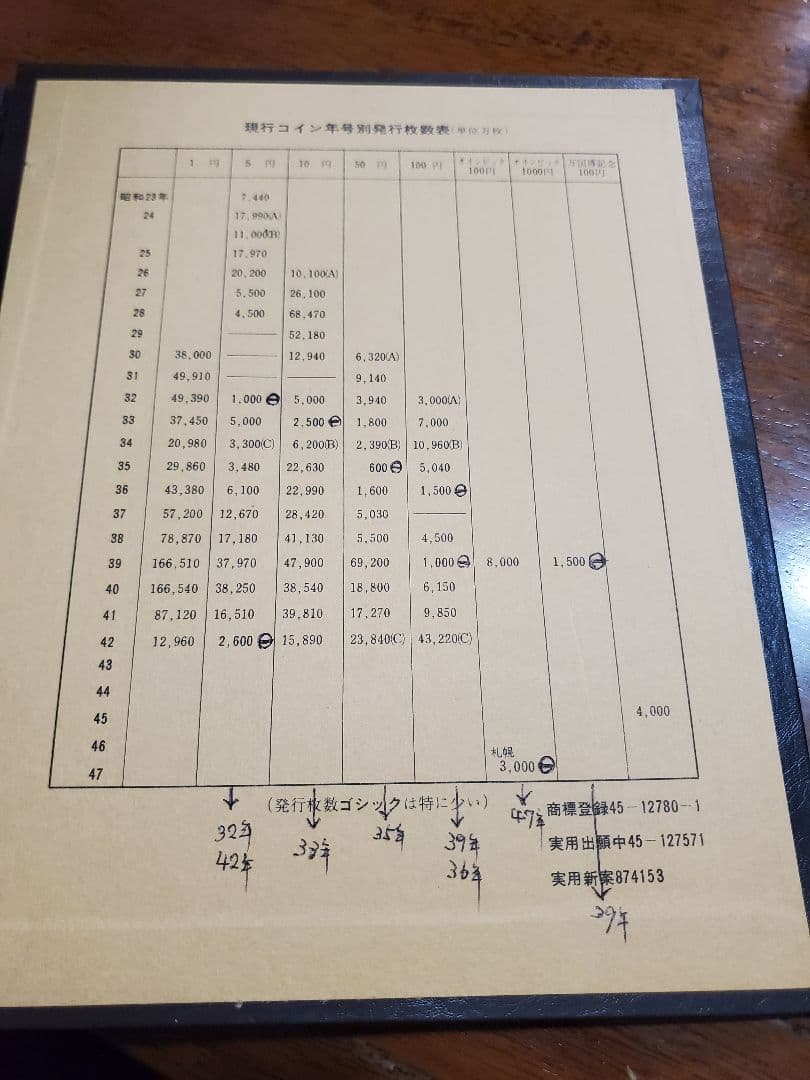 現行コイン年号別発行枚数表(単位万枚)
1 円 5 円 10 円 50 円 100 円 オリンピック100円 オリンピック1000円 万国博記念100円
昭和23年 7,440
24 17,990(A)
11,000(B)
25 17,970
26 20,200 10,100(A)
27 5,500 26,100
28 4,500 68,470
29 —— 52,180
30 38,000 —— 12,940 6,320(A)
31 49,910 —— —— 9,140
32 49,390 1,000 5,000 3,940 3,000(A)
33 37,450 5,000 2,500 1,800 7,000
34 20,980 3,300(C) 6,200(B) 2,390(B) 10,960(B)
35 29,860 3,480 22,630 600 5,040
36 43,380 6,100 22,990 1,600 1,500
37 57,200 12,670 28,420 5,030 ——
38 78,870 17,180 41,130 5,500 4,500
39 166,510 37,970 47,900 69,200 1,000 8,000 1,500
40 166,540 38,250 38,540 18,800 6,150
41 87,120 16,510 39,810 17,270 9,850
42 12,960 2,600 15,890 23,840(C) 43,220(C)
43
44
45 4,000
46
札幌
47 3,000
(発行枚数ゴシックは特に少い)
商標登録45-12780-1
実用出願中45-127571
実用新案874153
32年
42年
33年
35年
39年
36年
47年
39年